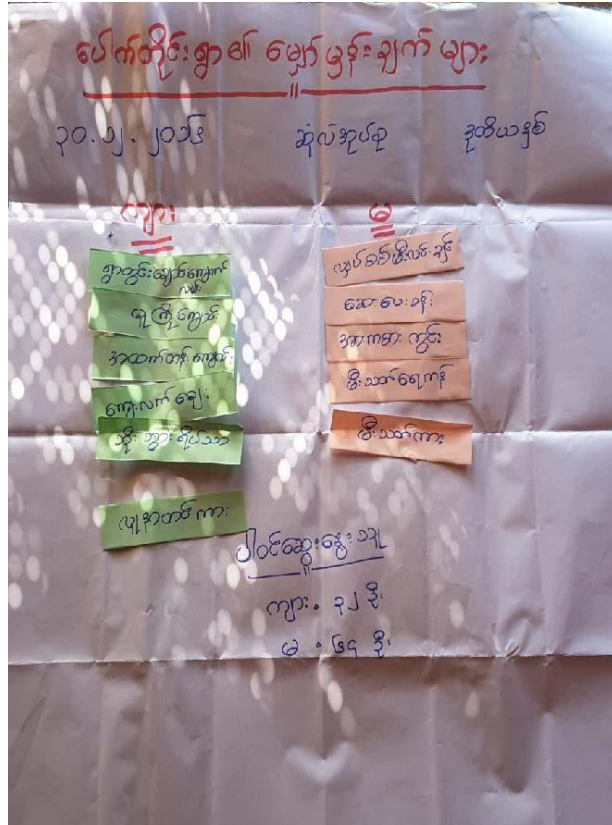 ပေါက်တိုင်းရွာ၏ မျှော်မှန်းချက် များ
၃၀.၁၂.၂၀၁၆ ဆုံလ်အုပ်စု ဒုတိယနှစ်
ကျား
မ
ရွာတွင်းချောင်ကျောက်
လမ်း
မူကြိုကျောင်း
အထက်တန်းကျောင်း
ကျေးလက်ဆေး
ဘိုးဘွားရိပ်သာ
လူနာတင်ကား
လျှပ်စစ်မီးလင်းချင်
ဆေးပေးခန်း
အားကစားကွင်း
မီးသတ်ရေကန်
မီးသတ်ကား
ပါဝင်ဆွေးနွေးသူ
ကျား - ၃၂ ဦး
မ - ၆၄ ဦး